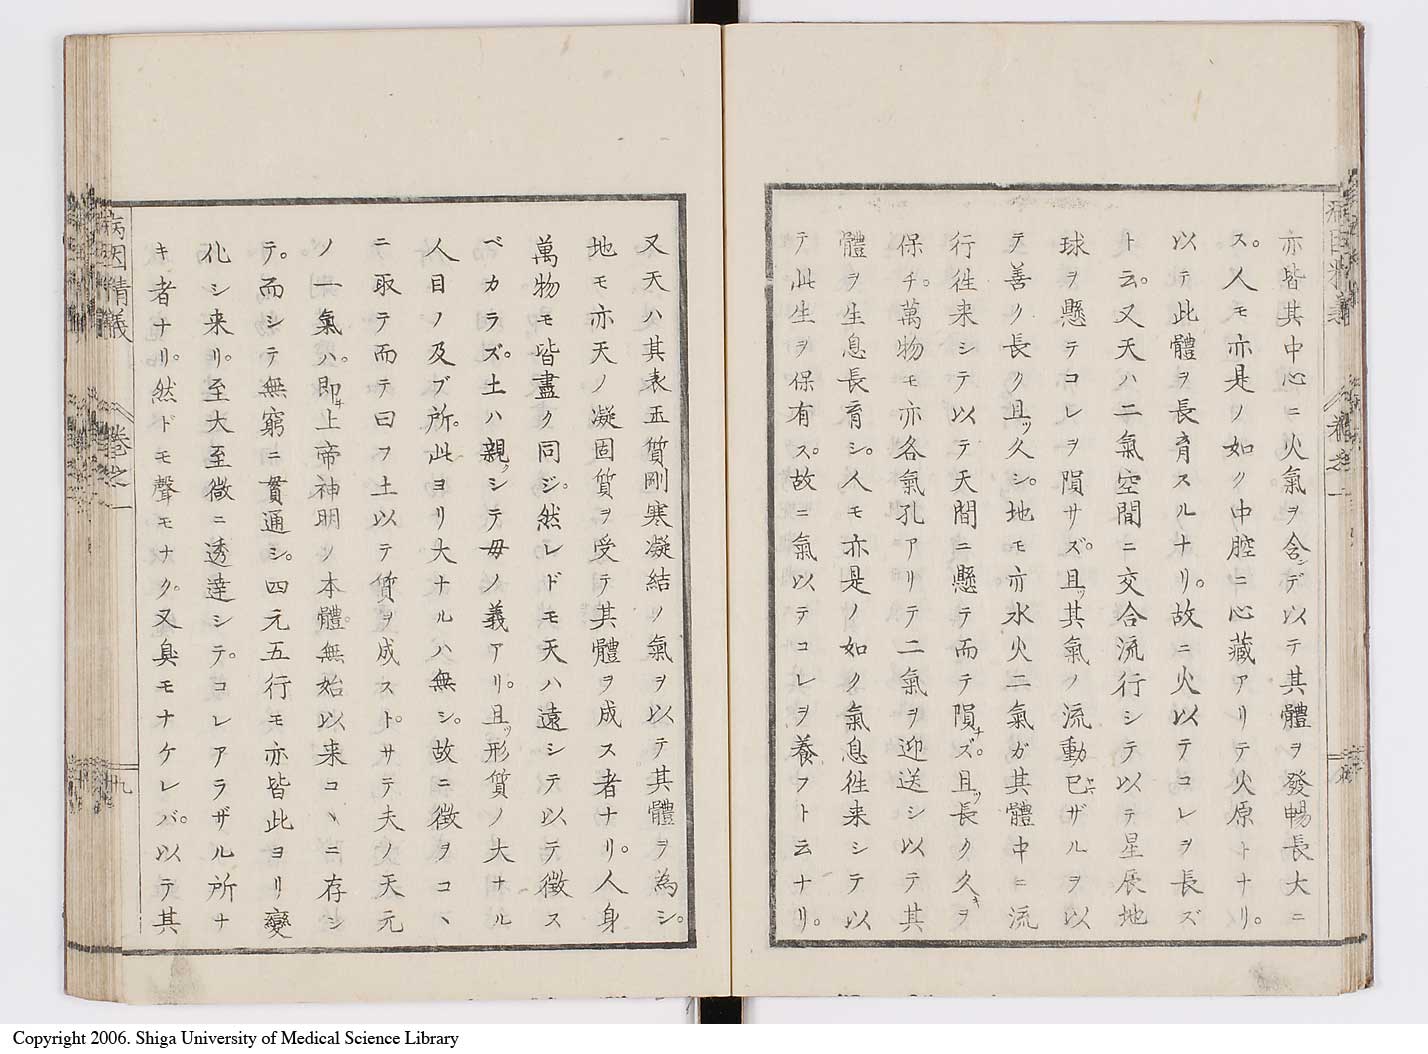 亦皆其中心ニ火氣ヲ含ンデ以テ其體ヲ發暢長大ニ
ス。人モ亦是ノ如ク中腔ニ心藏アリテ火原トナリ。
以テ此體ヲ長育スルナリ。故ニ火以テコレヲ長ズ
ト云。又天ハ二氣空間ニ交合流行シテ以テ星辰地
球ヲ懸テコレヲ隕サズ。且ッ其氣ノ流動已マザルヲ以
テ善ク長ク且ッ久シ。地モ亦水火二氣ガ其體中ニ流
行徃来シテ以テ天間ニ懸テ而テ隕チズ。且ッ長ク久キヲ
保チ。萬物モ亦各氣孔アリテ二氣ヲ迎送シ以テ其
體ヲ生息長育シ。人モ亦是ノ如ク氣息徃来シテ以
テ此生ヲ保有ス。故ニ氣以テコレヲ養フト云ナリ。
又天ハ其表玉質剛寒凝結ノ氣ヲ以テ其體ヲ為シ。
地モ亦天ノ凝固質ヲ受テ其體ヲ成ス者ナリ。人身
萬物モ皆盡ク同ジ。然レドモ天ハ遠シテ以テ徴ス
ベカラズ。土ハ親ッシテ毋ノ義アリ。且ッ形質ノ大ナル
人目ノ及ブ所。此ヨリ大ナルハ無シ。故ニ徴ヲコヽ
ニ取テ而テ曰フ土以テ質ヲ成スト。サテ夫ノ天元
ノ一氣ハ。即チ上帝神明ノ本體。無始以来コヽニ存シ
テ。而シテ無窮ニ貫通シ。四元五行モ亦皆此ヨリ變
化シ来リ。至大至微ニ透達シテ。コレアラザル所ナ
キ者ナリ。然ドモ聲モナク。又臭モナケレバ。以テ其
病因精義
卷之一
九